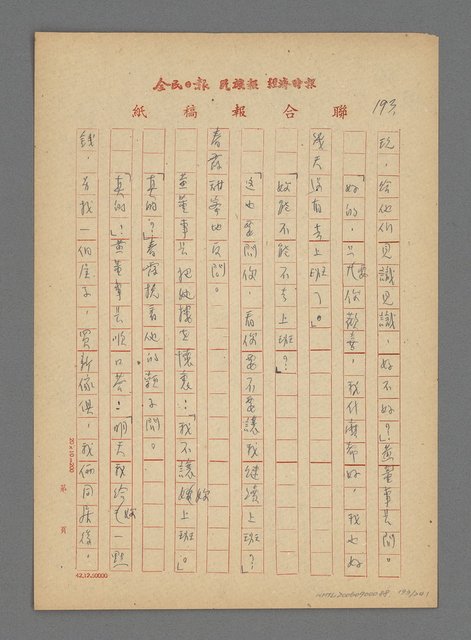 全民日報 民族報 經濟時報
聯合報稿紙
193.
玩，給他們見識見識，好不好？」黃董事長問。
「好的，只要你歡喜，我什麼都好，我也好
幾天沒有去上班了。」
「妳能不能不去上班？」
「這也要問你，看你要不要讓我繼續上班？」
春霞甜蜜地反問。
黃董事長把她摟在懷裏：「我不讓妳上班。」
「真的？」春霞托着他的頰子問。
「真的！」黃董事長順口答：「明天我給妳一點
錢，去找一個屋子，買新傢俱，我倆同居後，
20×10=200
第 頁
42.12.50000
NMTL20060900088 193/241